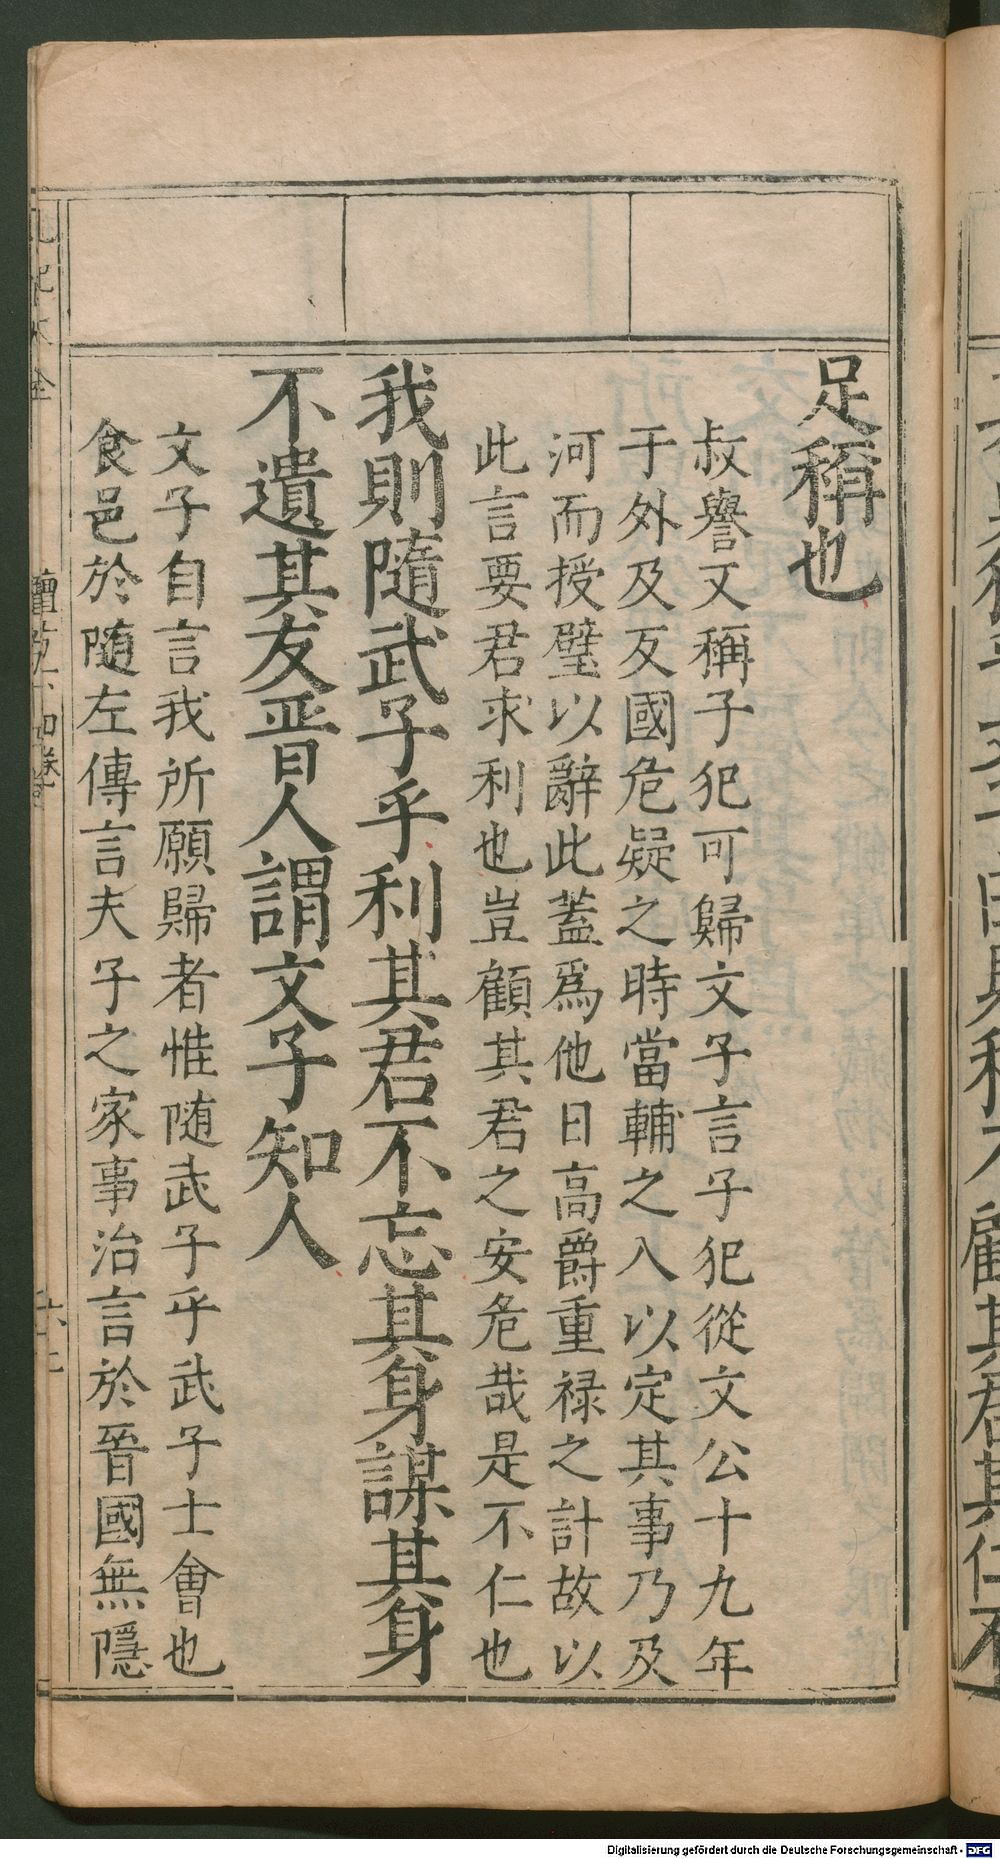 足稱也
叔譽又稱子犯可歸文子言子犯從文公十九年
于外及反國危疑之時當輔之入以定其事乃及
河而授璧以辭此蓋爲他日高爵重禄之計故以
此言要君求利也豈顧其君之安危哉是不仁也
我則隨武子乎利其君不忘其身謀其身
不遺其友晋人謂文子知人
文子自言我所願歸者惟随武子乎武子士會也
食邑於随左傳言夫子之家事治言於晉國無隱
Digitalisierung gefördert durch die Deutsche Forschungsgemeinschaft - DFG